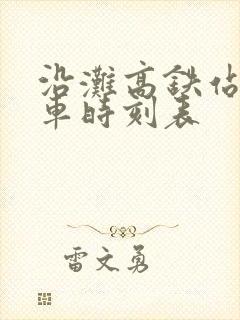 沿滩高鉄站
車時刻表
雷文勇